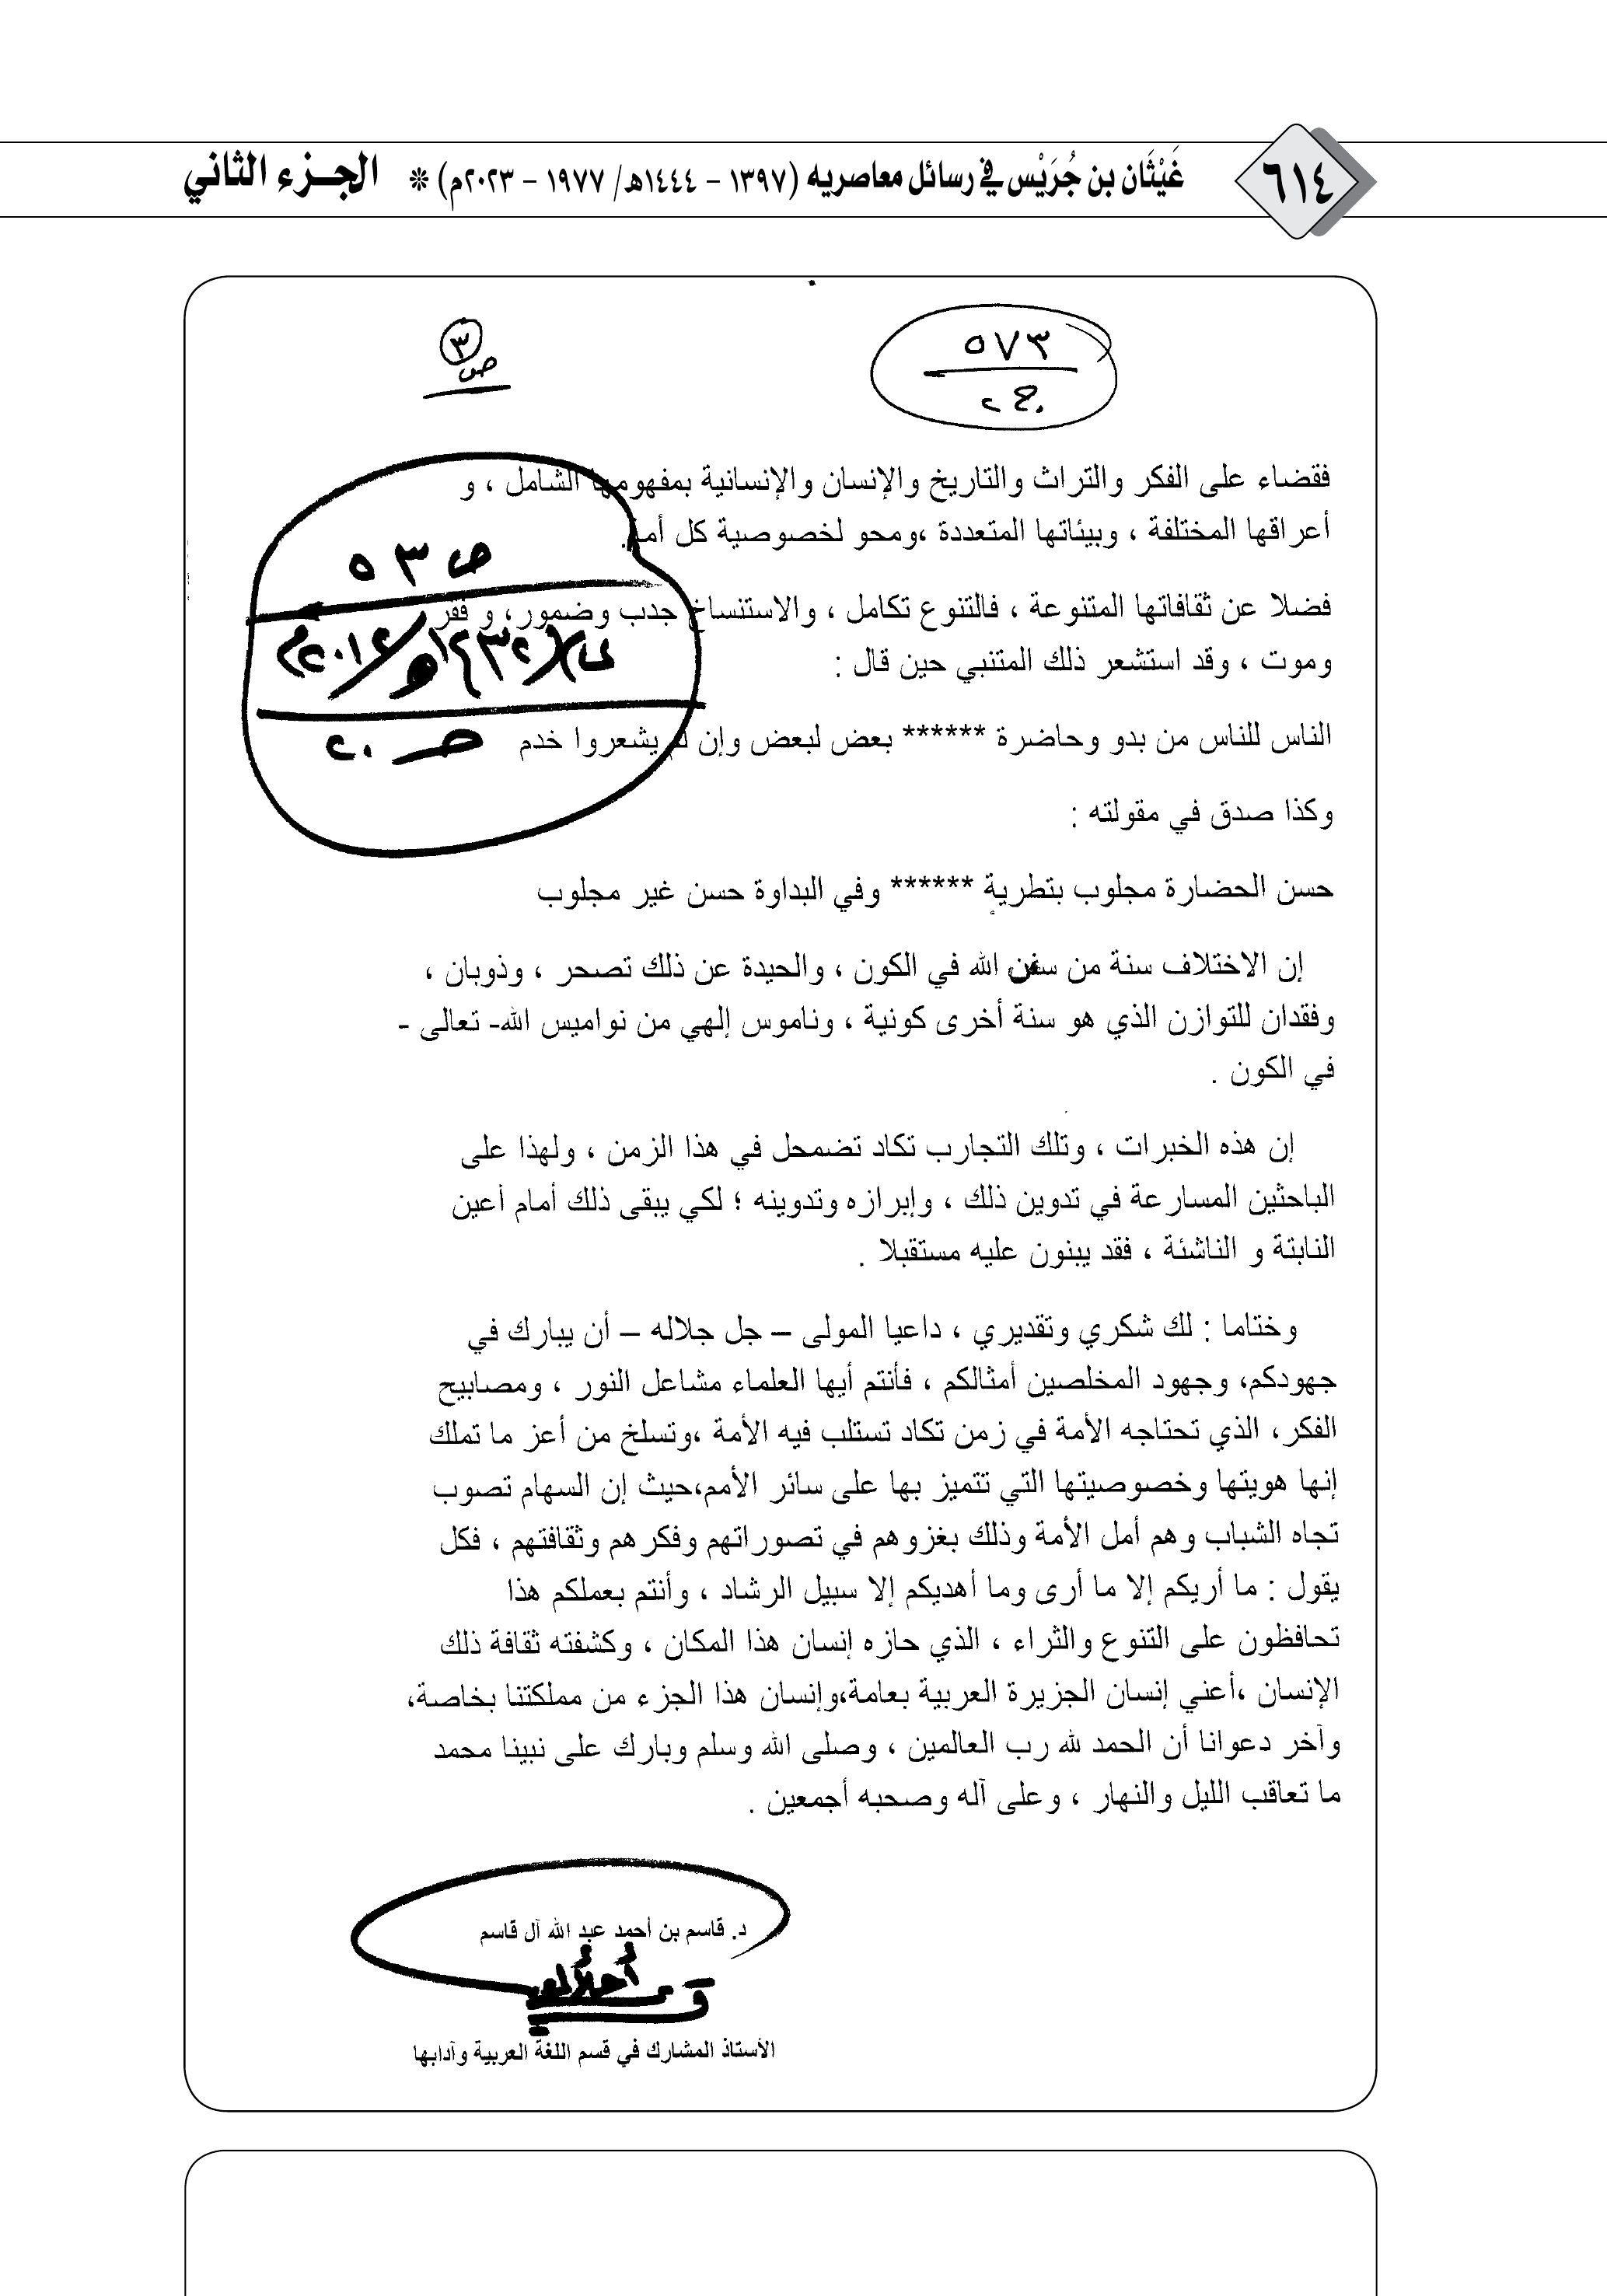 ٦١٤
غَيْثَان بن جُرَيْس في رسائل معاصريه (١٣٩٧ - ١٤٤٤هـ/ ١٩٧٧ - ٢٠٢٣م) * الجـزء الثاني
٥٧٣
ج٢
٣
ص
فقضاء على الفكر والتراث والتاريخ والإنسان والإنسانية بمفهومها الشامل ، و
أعراقها المختلفة ، وبيئاتها المتعددة ،ومحو لخصوصية كل أمة.
ص ٥٣
فضلا عن ثقافاتها المتنوعة ، فالتنوع تكامل ، والاستنساخ جدب وضمور، و فقر
وموت ، وقد استشعر ذلك المتنبي حين قال :
الناس للناس من بدو وحاضرة ****** بعض لبعض وإن لم يشعروا خدم
ص ٢٠
وكذا صدق في مقولته :
حسن الحضارة مجلوب بتطرية ****** وفي البداوة حسن غير مجلوب
إن الاختلاف سنة من سنن الله في الكون ، والحيدة عن ذلك تصحر ، وذوبان ،
وفقدان للتوازن الذي هو سنة أخرى كونية ، وناموس إلهي من نواميس الله- تعالى -
في الكون .
إن هذه الخبرات ، وتلك التجارب تكاد تضمحل في هذا الزمن ، ولهذا على
الباحثين المسارعة في تدوين ذلك ، وإبرازه وتدوينه ؛ لكي يبقى ذلك أمام أعين
النابتة و الناشئة ، فقد يبنون عليه مستقبلا .
وختاما : لك شكري وتقديري ، داعيا المولى – جل جلاله – أن يبارك في
جهودكم، وجهود المخلصين أمثالكم ، فأنتم أيها العلماء مشاعل النور ، ومصابيح
الفكر، الذي تحتاجه الأمة في زمن تكاد تستلب فيه الأمة ،وتسلخ من أعز ما تملك
إنها هويتها وخصوصيتها التي تتميز بها على سائر الأمم،حيث إن السهام تصوب
تجاه الشباب وهم أمل الأمة وذلك بغزوهم في تصوراتهم وفكرهم وثقافتهم ، فكل
يقول : ما أريكم إلا ما أرى وما أهديكم إلا سبيل الرشاد ، وأنتم بعملكم هذا
تحافظون على التنوع والثراء ، الذي حازه إنسان هذا المكان ، وكشفته ثقافة ذلك
الإنسان ،أعني إنسان الجزيرة العربية بعامة،وإنسان هذا الجزء من مملكتنا بخاصة،
وآخر دعوانا أن الحمد لله رب العالمين ، وصلى الله وسلم وبارك على نبينا محمد
ما تعاقب الليل والنهار ، وعلى آله وصحبه أجمعين .
د. قاسم بن أحمد عبد الله آل قاسم
الأستاذ المشارك في قسم اللغة العربية وآدابها